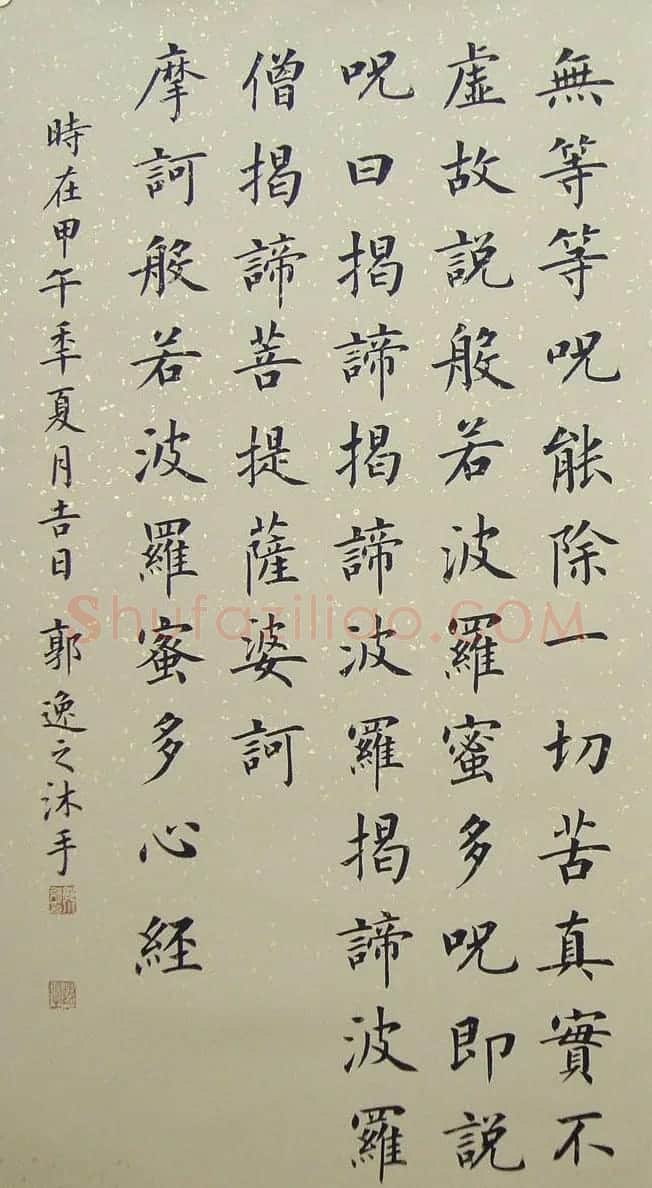 無等等呪能除一切苦真實不
虛故説般若波羅蜜多呪即説
呪曰揭諦揭諦波羅揭諦波羅
僧揭諦菩提薩婆訶
摩訶般若波羅蜜多心経
時在甲午季夏月吉日 郭逸之沐手
Shufaziliao.COM